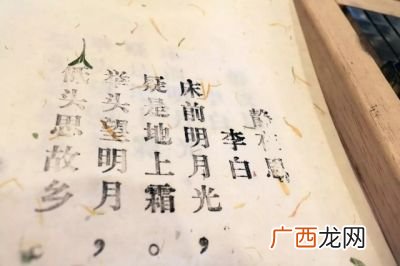 静夜思
李白
床前明月光，
疑是地上霜。
举头望明月，
低头思故乡。
广西龙网